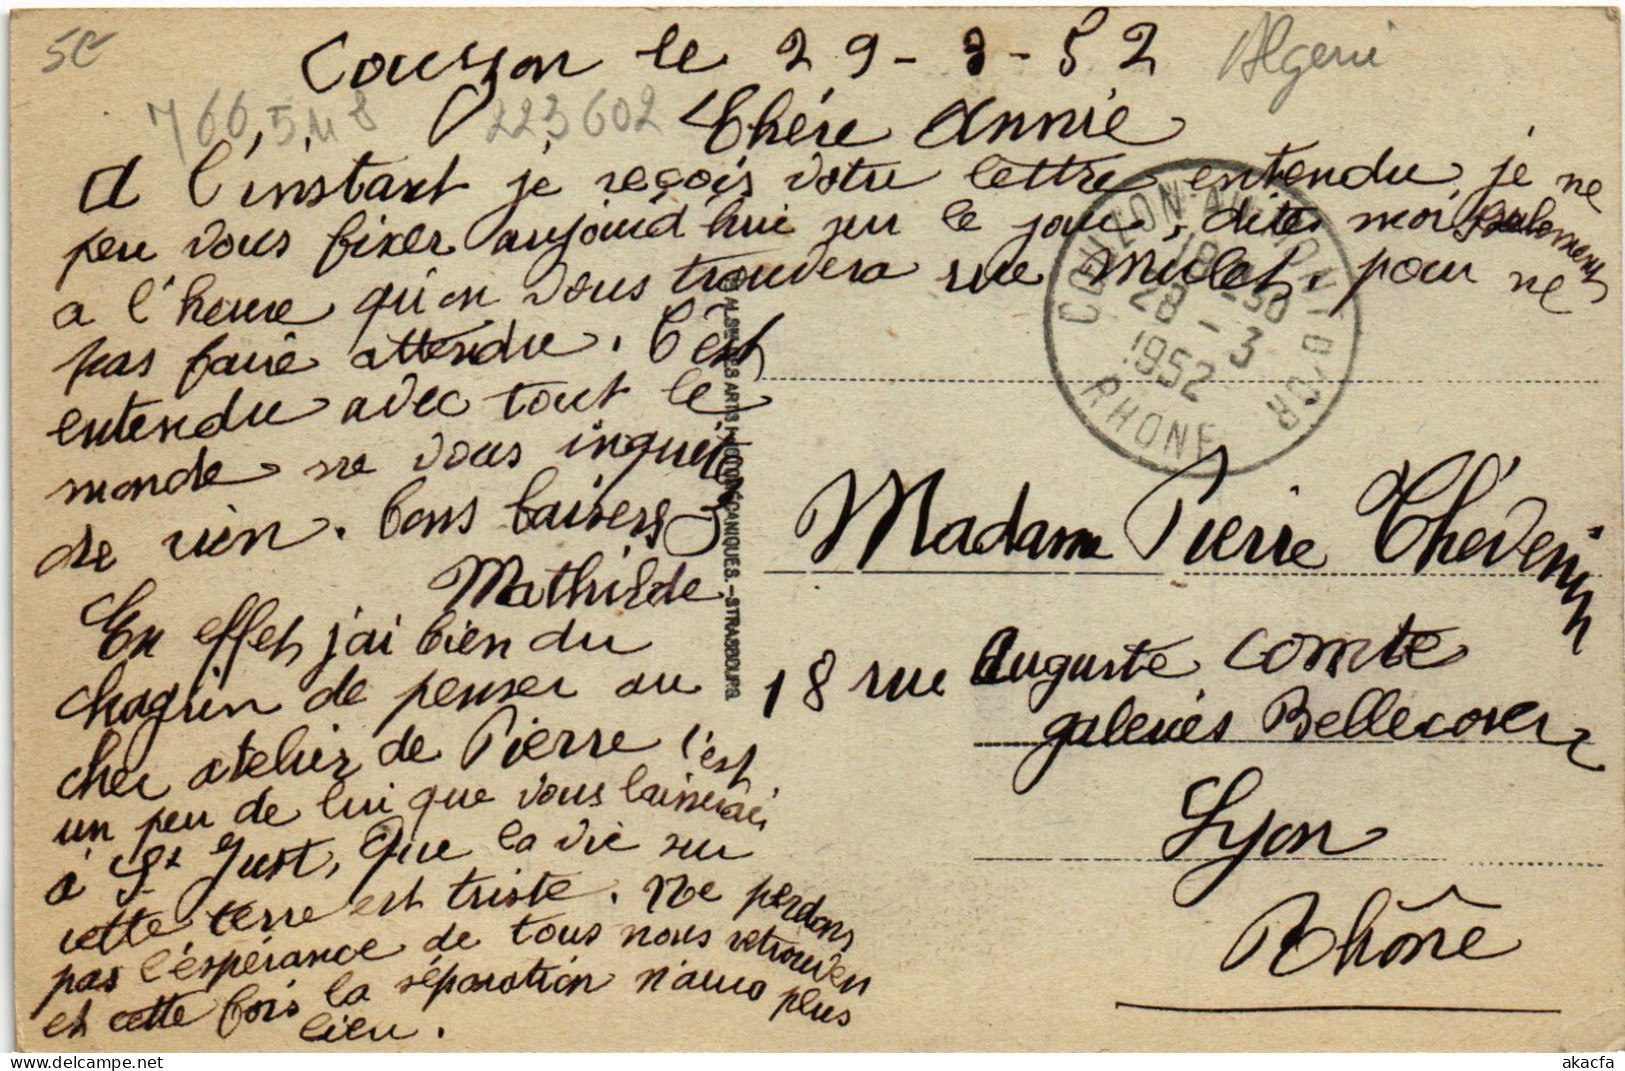 5e
Couzon le 29-3-52
Algerie
766548
223602
Chére Annie
A l'instant je reçois votre lettre entendu, je ne
peu vous fixer aujourd hui sur le jour, dites moi seulement
a l'heure qu'on vous trouvera rue Mulet, pour ne
pas faire attendre. C'est
entendu avec tout le
monde ne vous inquiétez
de rien. Bons baisers
Mathilde
En effet j'ai bien du
chagrin de penser au
cher atelier de Pierre c'est
un peu de lui que vous laisserai
à St Just, Que la vie sur
cette terre est triste. Ne perdons
pas l'espérance de tous nous retrouver
et cette fois la séparation n'aura plus
lieu.
COUZON-AU-MONT-D'OR
18 -30
28 - 3
1952
RHONE
ARTS MÉCANIQUES. - STRASBOURG
Madame Pierre Thévenin
18 rue Auguste Comte
galeries Bellecour
Lyon
Rhône
akacfa.com